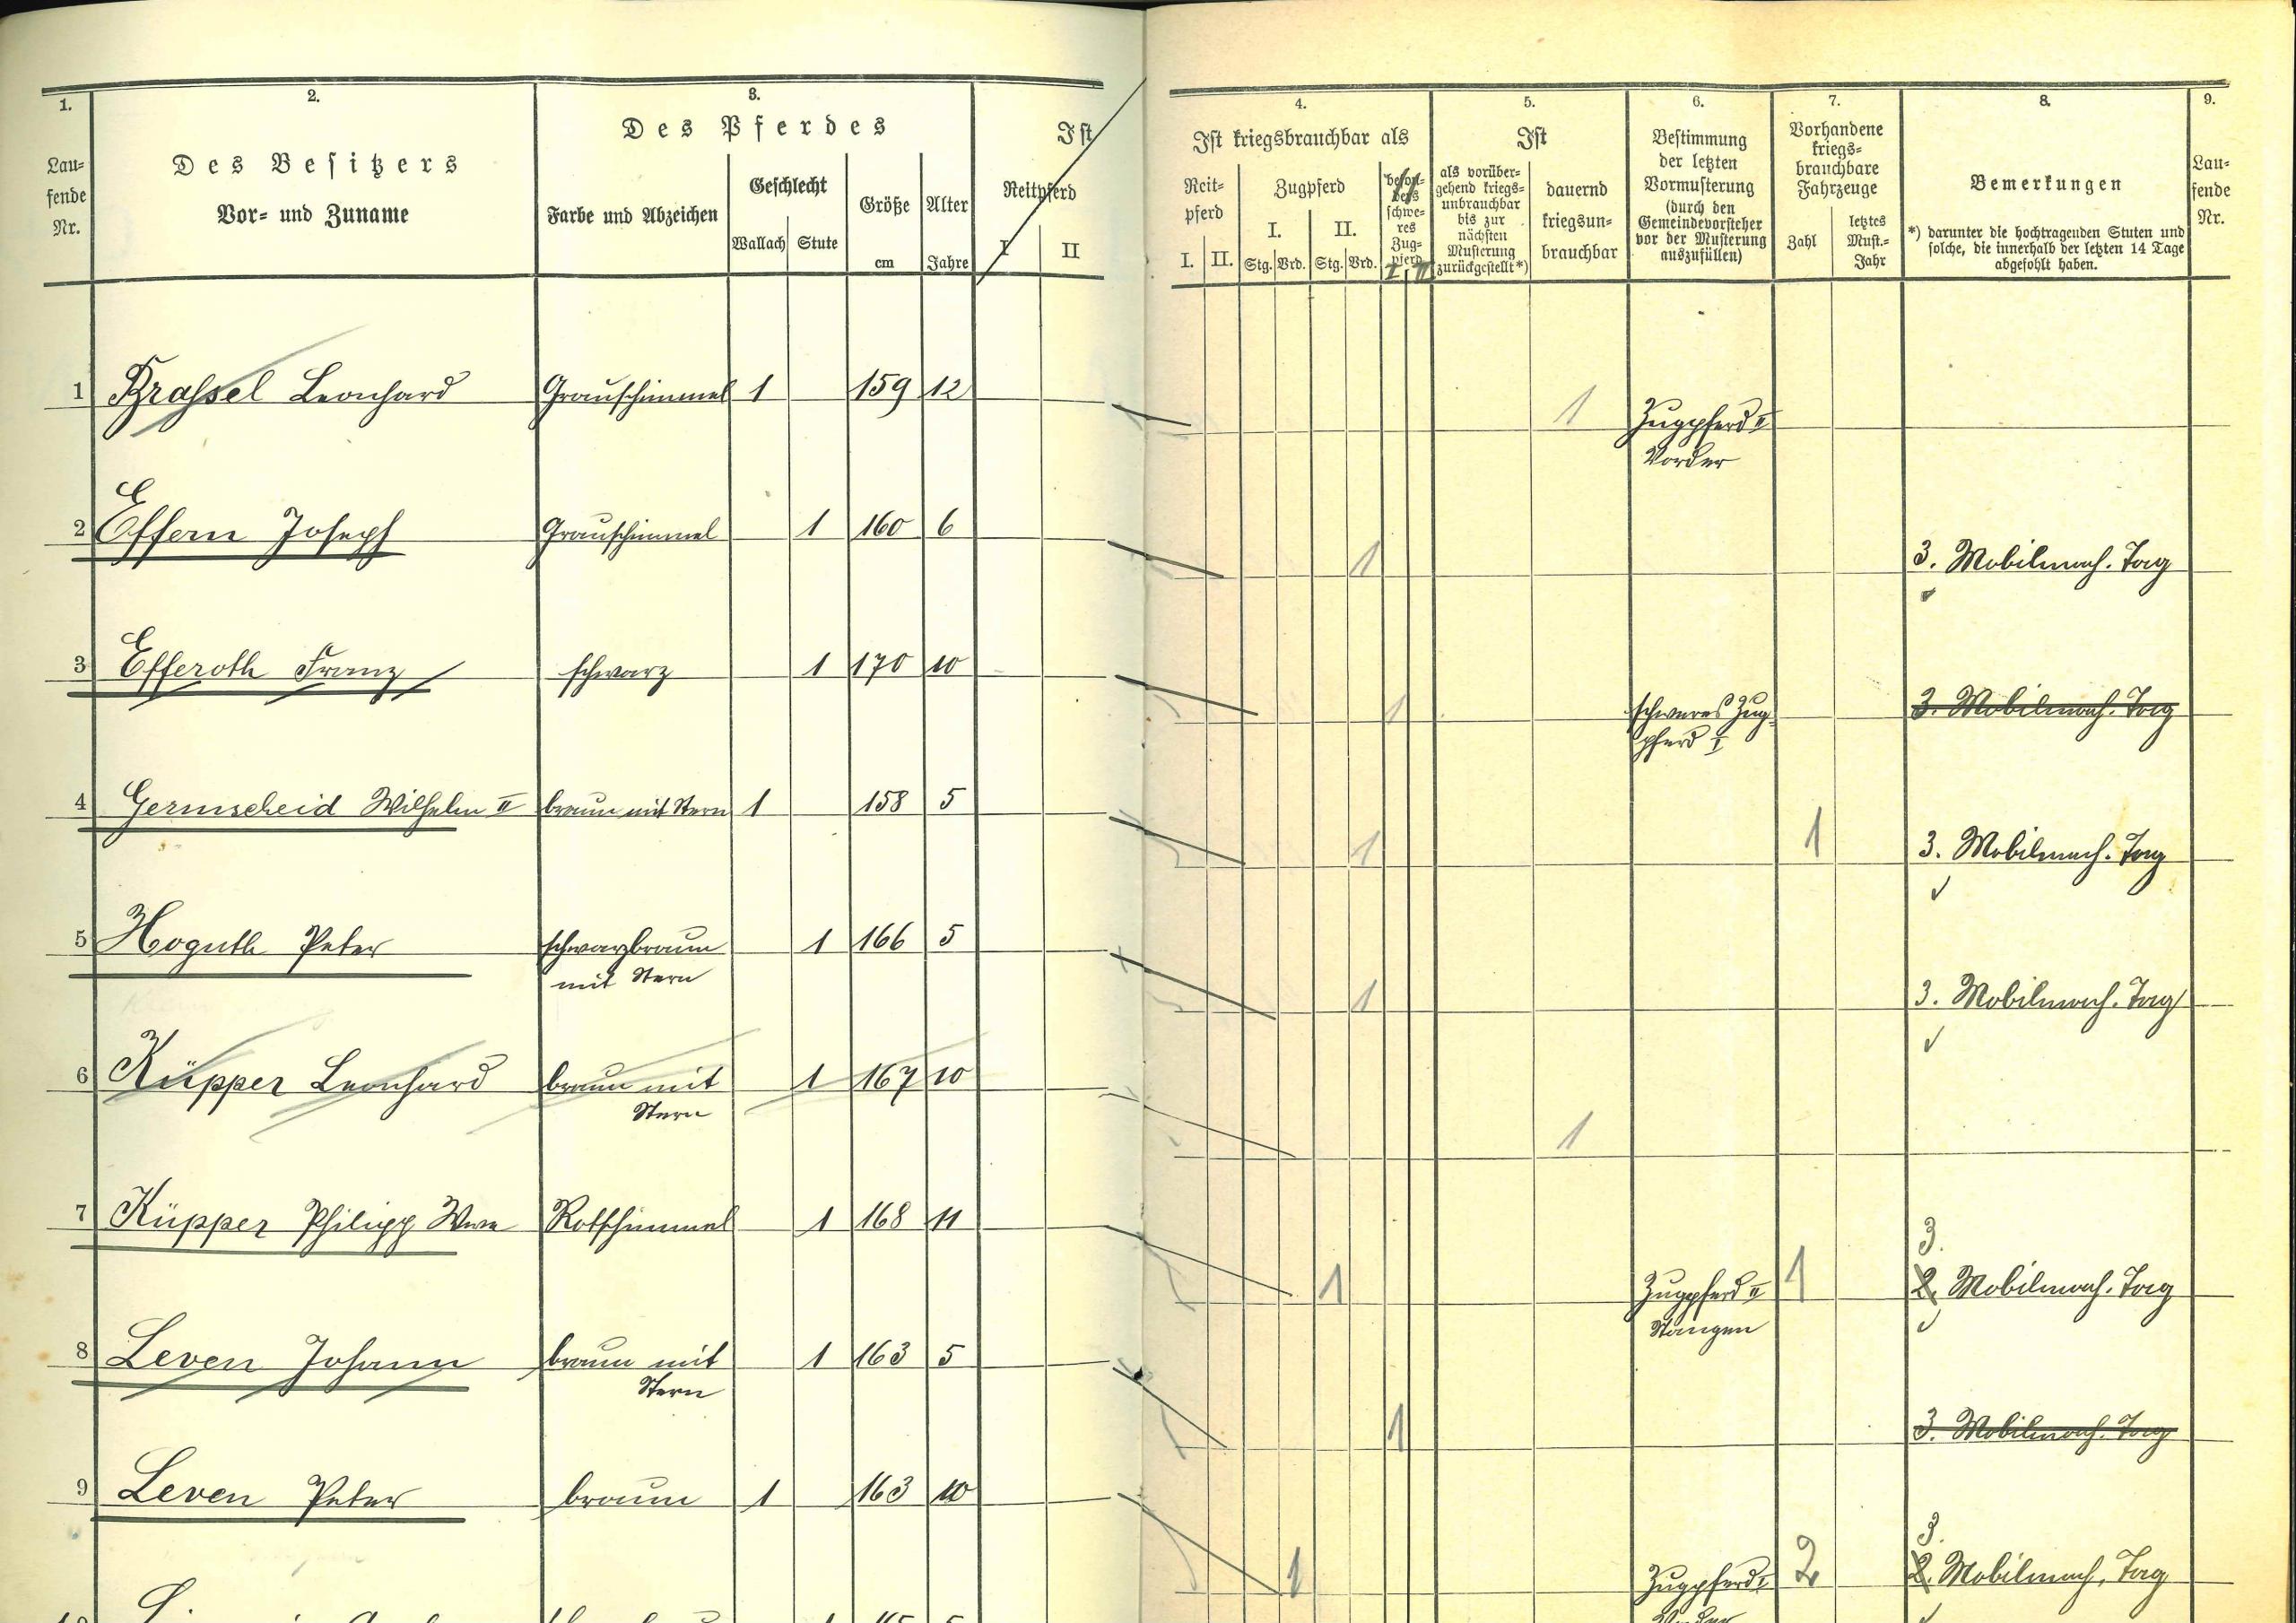 1.
Lau-
fende
Nr.
2.
Des Besitzers
Vor- und Zuname
3.
Des Pferdes
Farbe und Abzeichen
Geschlecht
Wallach Stute
Größe
cm
Alter
Jahre
Ist
Reitpferd
I II
4.
Ist kriegsbrauchbar als
Reit-
pferd
I. II.
Zugpferd
I. II.
Stg. Vrd. Stg. Vrd.
beson-
ders
schwe-
res
Zug-
pferd
I II
5.
Ist
als vorüber-
gehend kriegs-
unbrauchbar
bis zur
nächsten
Musterung
zurückgestellt*)
dauernd
kriegsun-
brauchbar
6.
Bestimmung
der letzten
Vormusterung
(durch den
Gemeindevorsteher
vor der Musterung
auszufüllen)
7.
Vorhandene
kriegs-
brauchbare
Fahrzeuge
Zahl
letztes
Must.-
Jahr
8.
Bemerkungen
*) darunter die hochtragenden Stuten und
solche, die innerhalb der letzten 14 Tage
abgefohlt haben.
9.
Lau-
fende
Nr.
1 Brassel Leonhard Grauschimmel 1 159 12 1 Zugpferd II
Vorder
2 Effern Joseph Grauschimmel 1 160 6 1 3. Mobilmach. Tag
3 Efferoth Franz schwarz 1 170 10 1 schweres Zug- 3. Mobilmach. Tag
pferd I
4 Germscheid Wilhelm II braun mit Stern 1 158 5 1 1 3. Mobilmach. Tag
5 Hoguth Peter schwarzbraun 1 166 5 1 3. Mobilmach. Tag
mit Stern
6 Küpper Leonhard braun mit 1 167 10 1
Stern
7 Küpper Philipp Wwe Rotschimmel 1 168 11 1 Zugpferd II 1 3. 2. Mobilmach. Tag
Stangen
8 Leven Johann braun mit 1 163 5 1 3. Mobilmach. Tag
Stern
9 Leven Peter braun 1 163 10 1 Zugpferd I 2 3. 2. Mobilmach. Tag
Vorder